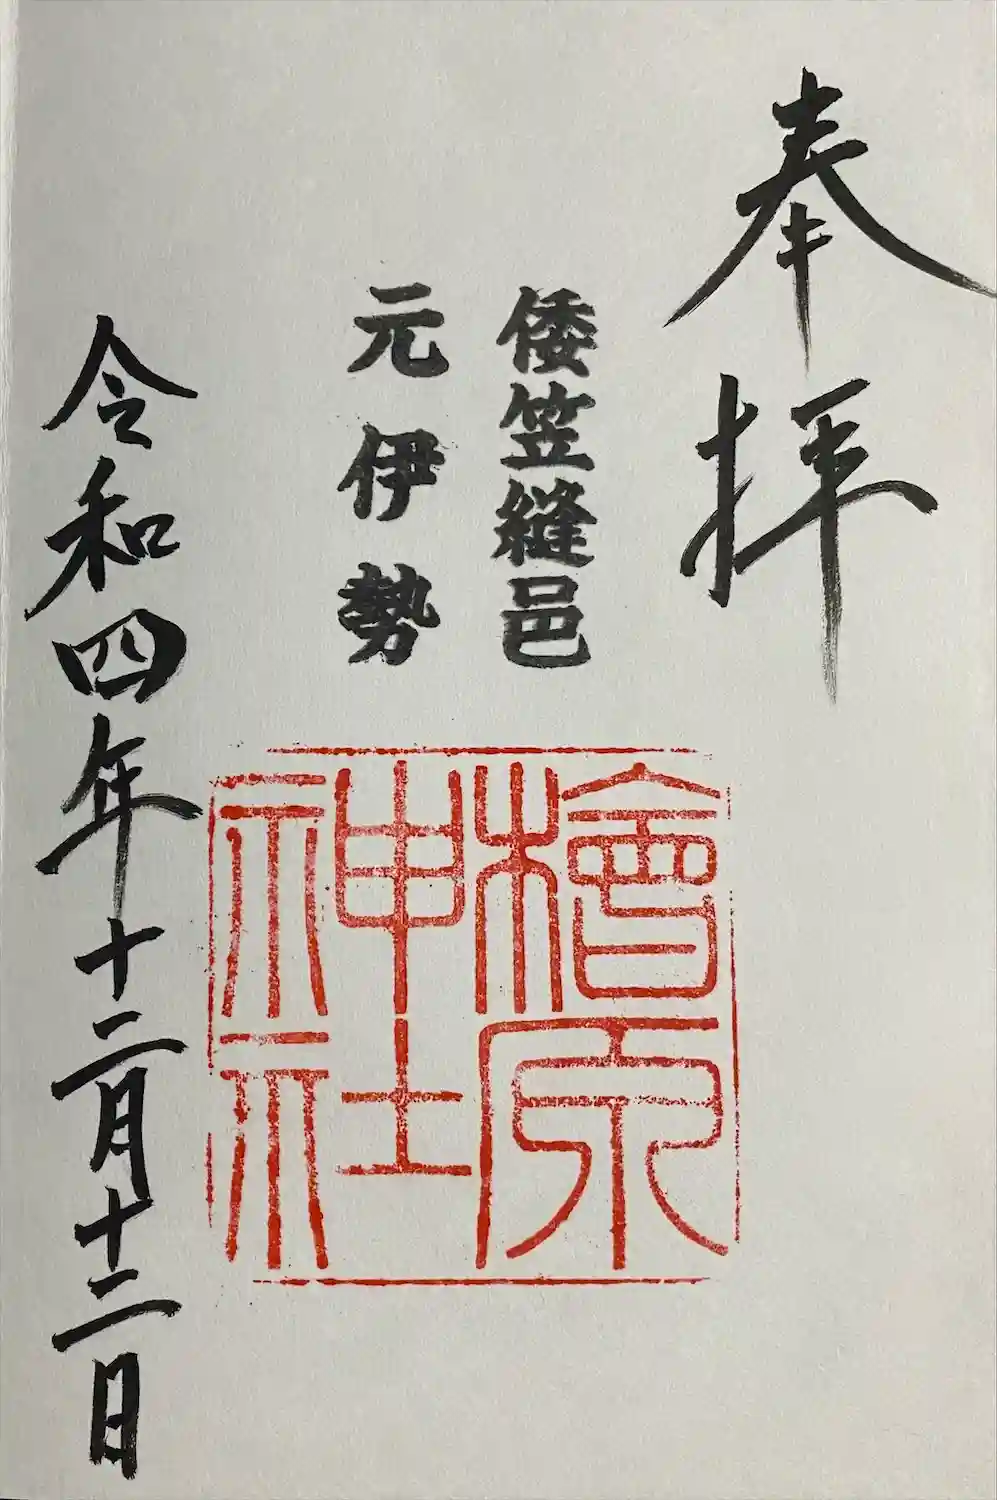 奉拝
倭笠縫邑
元伊勢
檜原
神社
令和四年十二月十二日